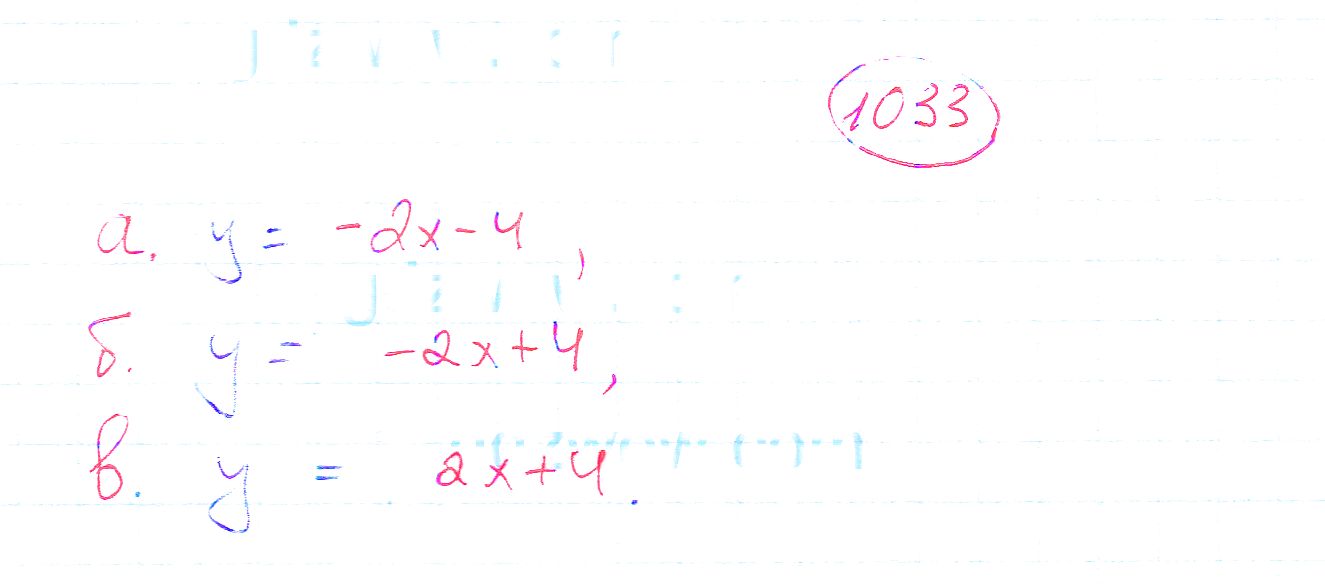 1033
а. y = -2x-4,
б. y = -2x+4,
в. y = 2x+4.